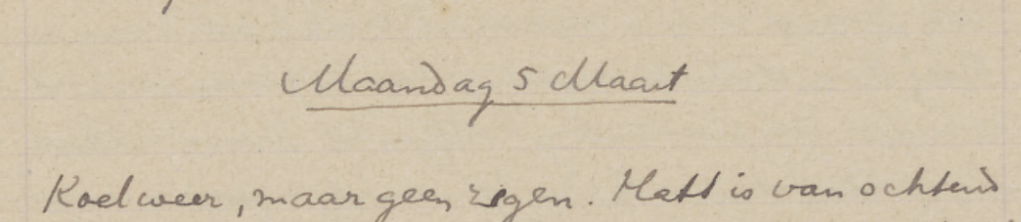 Maandag 5 Maart
Koel weer, maar geen regen. Matt is van ochtend